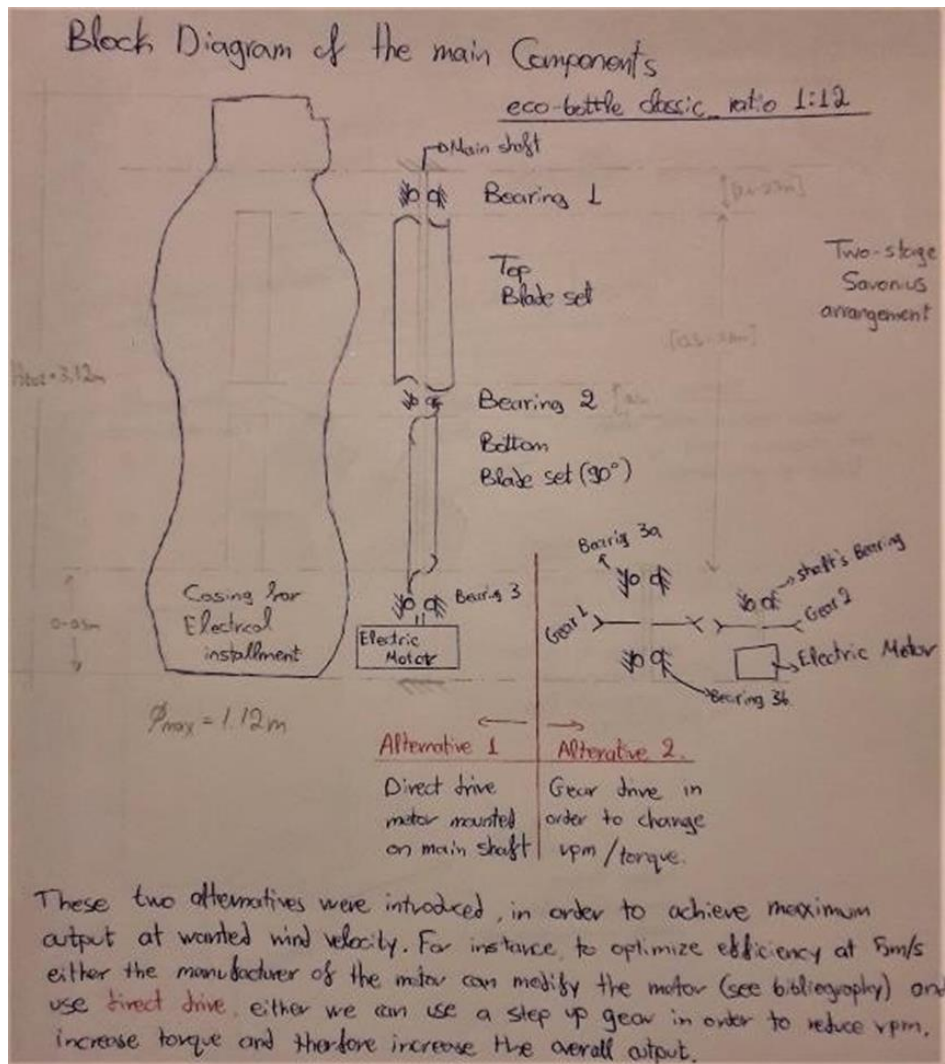 Block Diagram of the main Components
eco-bottle classic_ratio 1:12
Main shaft
Bearing 1
Top
Blade set
Two-stage
Savonius
arrangement
Htot = 3.12m
Bearing 2
Bottom
Blade set (90°)
Bearing 3a
shaft's Bearing
Casing for
Electrical
installment
Bearing 3
Gear 1
Gear 2
Electric
Motor
Electric Motor
Bearing 3b
φmax = 1.12m
Alternative 1
Alterative 2.
Direct drive
motor mounted
on main shaft
Gear drive in
order to change
rpm/torque.
These two alternatives were introduced, in order to achieve maximum
output at wanted wind velocity. For instance, to optimize efficiency at 5m/s
either the manufacturer of the motor can modify the motor (see bibliography) and
use direct drive, either we can use a step up gear in order to reduce rpm,
increase torque and therfore increase the overall output.